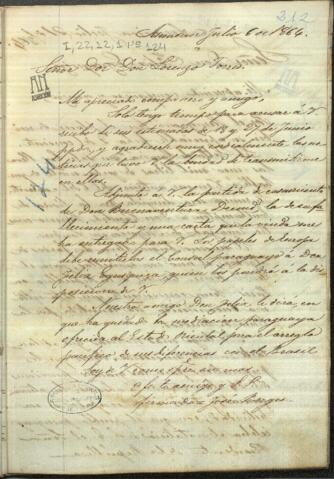 212
Asuncion julio 6 de 1864.
I, 22, 12, 1 nº 124
Señor Dor Don Lorenzo Torres.
Mi apreciado compatriota y amigo,
Solo tengo tiempo para acusar á V.
recibo de sus estimadas de 13 y 27 de junio
ppdo, y agradecer muy cordialmente las no
ticias que tuvo V. la bondad de transmitirme
en ellas.
Adjunto á V. la partida de casamiento
de Don Buenaventura la de su fa
llecimiento y una carta que la viuda me
ha entregado para V. Los papeles de
remitirlos el Consul paraguayo á Don
Felix Egusquiza, quien los pondrá a la dis
posicion de V.
Nuestro amigo Don Felix le dirá, en
que ha quedado la mediacion paraguaya
ofrecida al Estado Oriental para el arreglo
pacifico de sus diferencias con el Brasil
Soy de V. como siempre su mas
afto amigo y S. S.
José Berges.
124